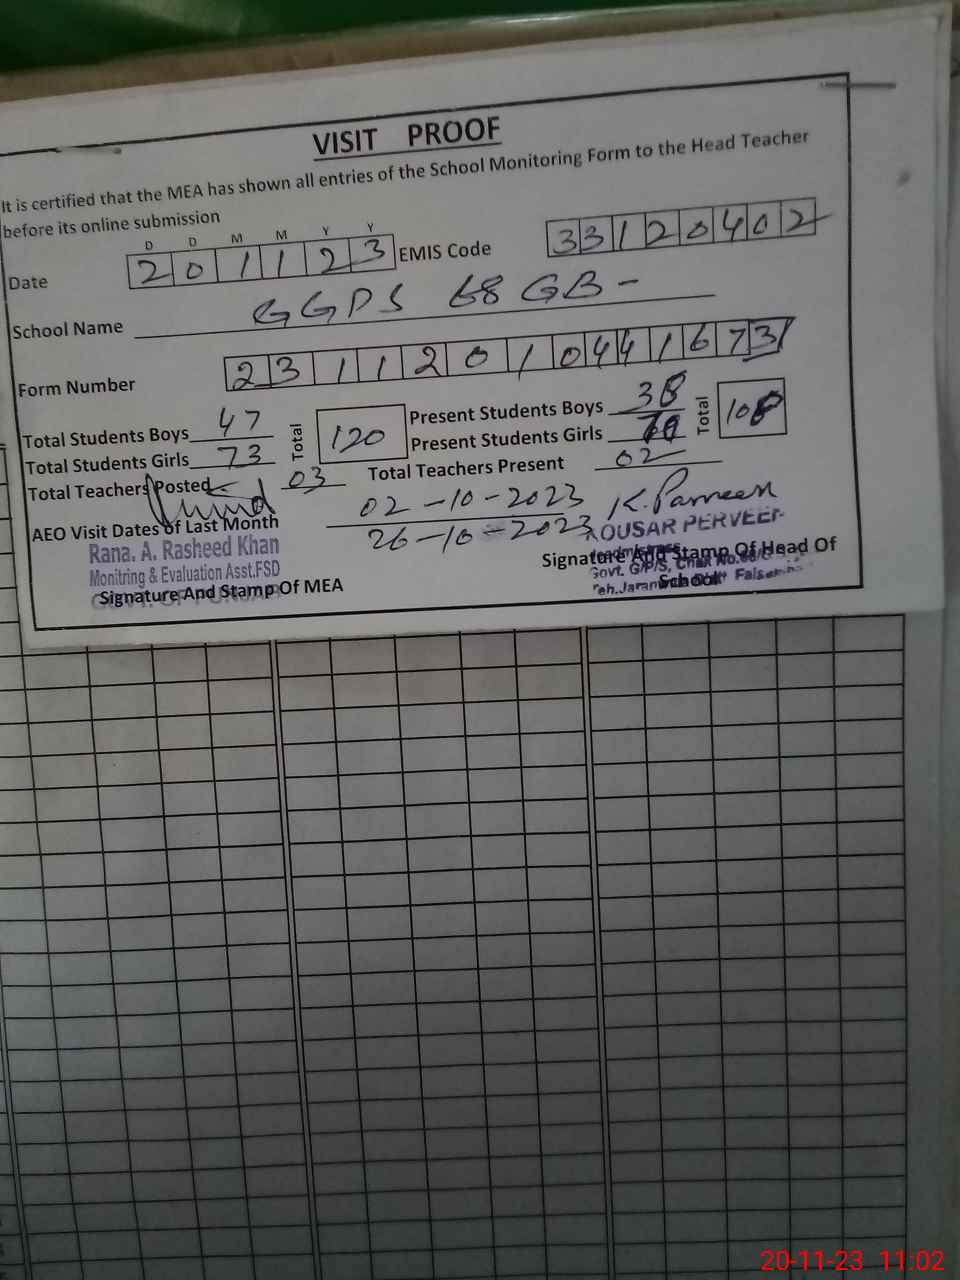 VISIT PROOF
It is certified that the MEA has shown all entries of the School Monitoring Form to the Head Teacher
before its online submission
D D M M Y Y
Date 2 0 1 1 2 3 EMIS Code 3 3 1 2 0 4 0 2
School Name GGPS 68 GB -
Form Number 2 3 1 1 2 0 1 0 4 4 1 6 7 3
Total Students Boys 47 Total 120 Present Students Boys 38 Total 108
Total Students Girls 73 Present Students Girls
Total Teachers Posted 03 Total Teachers Present 02
AEO Visit Dates of Last Month 02-10-2023
26-10-2023
K. Parveen
KOUSAR PERVEEN
Rana. A. Rasheed Khan
Monitring & Evaluation Asst.FSD
Signature And Stamp Of MEA
Signature And Stamp Of Head Of
School
Govt. G/P/S, Chak No.68/G
20-11-23 11:02